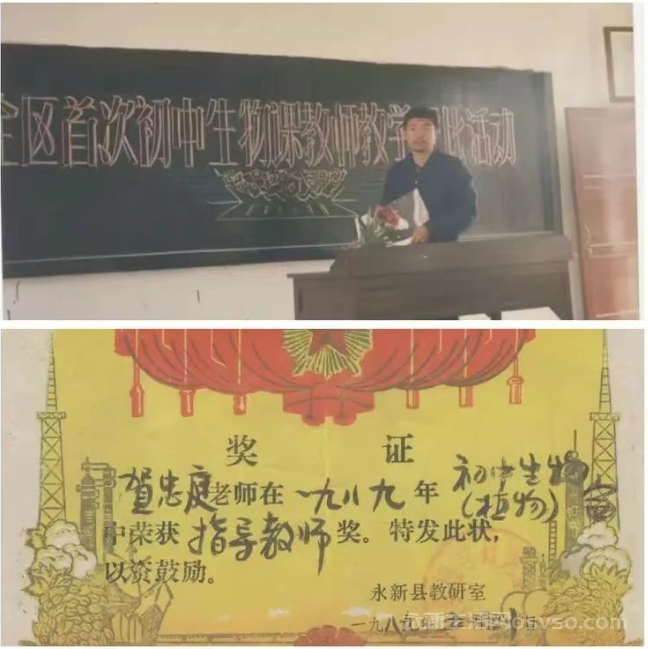 全区首次初中生物课教师教学评比活动
奖 证
贺忠庭老师在一九八九年初中生物(植物)
中荣获指导教师奖。特发此状,
以资鼓励。
永新县教研室
一九八九年
osvso.com